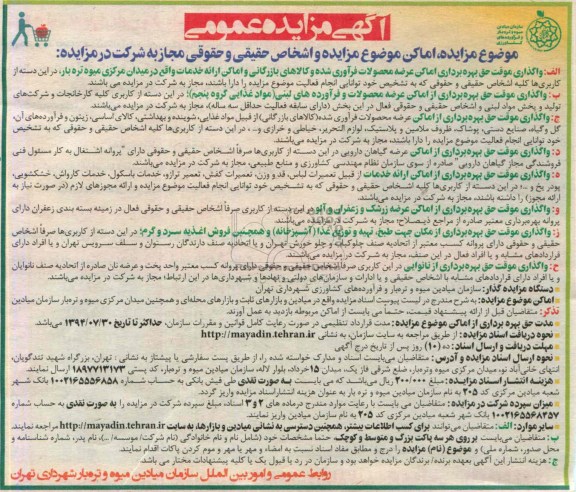 آگهی مزایده عمومی
سازمان میادین میوه و تره‌بار و فرآورده‌های کشاورزی
موضوع مزایده، اماکن موضوع مزایده و اشخاص حقیقی و حقوقی مجاز به شرکت در مزایده:
الف: واگذاری موقت حق بهره‌برداری از اماکن عرضه محصولات فرآوری شده و کالاهای بازرگانی و اماکن ارائه خدمات واقع در میدان مرکزی میوه تره بار، در این دسته از
کاربری‌ها کلیه اشخاص حقیقی و حقوقی که به تشخیص خود توانایی انجام فعالیت موضوع مزایده را دارا باشند، مجاز به شرکت در مزایده می‌باشند.
ب: واگذاری موقت حق بهره‌برداری از اماکن عرضه محصولات و فرآورده های لبنی (مواد غذایی گروه پنجم): در این دسته از کاربری کلیه کارخانجات و شرکت‌های
تولید و پخش مواد لبنی و اشخاص حقیقی و حقوقی فعال در این بخش (دارای سابقه فعالیت حداقل سه ساله)، مجاز به شرکت در مزایده می‌باشند.
ج: واگذاری موقت حق بهره‌برداری از اماکن عرضه محصولات فرآوری شده (کالاهای بازرگانی) از قبیل مواد غذایی، شوینده و بهداشتی، کالای اساسی، زیتون و فرآورده‌های آن،
گل و گیاه، صنایع دستی، پوشاک، ظروف ملامین و پلاستیک، لوازم التحریر، خیاطی و خرازی و... ، در این دسته از کاربری‌ها کلیه اشخاص حقیقی و حقوقی که به تشخیص
خود توانایی انجام فعالیت موضوع مزایده را دارا باشند، مجاز به شرکت در مزایده می‌باشند.
د: واگذاری موقت حق بهره‌برداری از اماکن عرضه گیاهان دارویی در این دسته از کاربری‌ها صرفاً اشخاص حقیقی و حقوقی دارای "پروانه اشتغال به کار مسئول فنی
فروشندگی مجاز گیاهان دارویی" صادره از سوی سازمان نظام مهندسی کشاورزی و منابع طبیعی، مجاز به شرکت در مزایده می‌باشند.
ه: واگذاری موقت حق بهره‌برداری از اماکن ارائه خدمات از قبیل تعمیرات لباس، قد و وزن، تعمیرات کفش، تعمیر ترازو، خدمات باسکول، خدمات کارواش، خشکشویی،
پودر یخ و ...؛ در این دسته از کاربری‌ها کلیه اشخاص حقیقی و حقوقی که به تشخیص خود توانایی انجام فعالیت موضوع مزایده و ارائه مجوزهای لازم (در صورت نیاز به
ارائه مجوز) را داشته باشند، مجاز به شرکت در مزایده می‌باشند.
و: واگذاری موقت حق بهره‌برداری از اماکن عرضه زرشک و زعفران و آلو در این کاربری صرفاً اشخاص حقیقی و حقوقی فعال در زمینه بسته بندی زعفران دارای
پروانه بهره‌برداری معتبر صادره از مراجع ذیصلاح؛ مجاز به شرکت در مزایده می‌باشند.
ز: واگذاری موقت حق بهره‌برداری از مکان جهت طبخ، تهیه و توزیع غذا (آشپزخانه) و همچنین فروش اغذیه سرد و گرم؛ در این دسته از کاربری‌ها صرفاً اشخاص
حقیقی و حقوقی دارای پروانه کسب معتبر از اتحادیه صنف چلوکباب و چلو خورش تهران و یا اتحادیه صنف دارندگان رستوران و سلف سرویس تهران و یا افراد دارای
قراردادهای مشابه و یا افراد فعال در این صنف، مجاز به شرکت در مزایده می‌باشند.
ح: واگذاری موقت حق بهره‌برداری از نانوایی در این کاربری صرفاً اشخاص حقیقی و حقوقی دارای پروانه کسب معتبر واحد پخت و عرضه نان صادره از اتحادیه صنف نانوایان
و یا افراد دارای قراردادهای مشابه با اشخاص حقیقی و یا ادارات و سازمان‌های دولتی و نهادها و شهرداری‌ها در این ارتباط؛ مجاز به شرکت در مزایده می‌باشند.
دستگاه مزایده گذار: سازمان میادین میوه و تره‌بار و فرآورده‌های کشاورزی شهرداری تهران
اماکن موضوع مزایده: به شرح مندرج در لیست پیوست اسناد مزایده واقع در میادین و بازارهای ثابت و بازارهای محله‌ای و همچنین میدان مرکزی میوه و تره‌بار سازمان میادین
تذکر: متقاضیان قبل از ارائه پیشنهاد قیمت، حتما می بایست از اماکن مربوطه بازدید به عمل آورند.
مدت حق بهره برداری از اماکن موضوع مزایده: مدت قرارداد تنظیمی در صورت رعایت کامل قوانین و مقررات سازمان، حداکثر تا تاریخ ۱۳۹۴/۰۷/۳۰ می‌باشد.
نحوه دریافت اسناد مزایده: از طریق مراجعه به سایت سازمان، به نشانی http://mayadin.tehran.ir
مهلت دریافت و ارسال اسناد: ده (۱۰) روز پس از تاریخ درج آگهی
نحوه ارسال اسناد مزایده و آدرس: متقاضیان می‌بایست اسناد و مدارک خواسته شده را، از طریق پست سفارشی یا پیشتاز به نشانی: تهران، بزرگراه شهید تندگویان،
انتهای خانی‌آباد نو، میدان مرکزی میوه وتره‌بار، ضلع شرقی فاز یک، میدان ۱۵ خرداد، بلوار لاله، سازمان میادین میوه و تره‌بار، کد پستی ۱۸۹۷۷۱۳۱۷۳ ارسال نمایند.
هزینه انتشار اسناد مزایده: مبلغ ۲۰۰/۰۰۰ ریال می‌باشد که می بایست به صورت نقدی طی فیش بانکی به حساب شماره ۱۰۰۲۱۶۵۵۵۶۸۵۸ بانک شهر
شعبه میادین مرکزی کد ۲۰۵ به نام سازمان میادین میوه و تره بار به عنوان هزینه انتشار اسناد مزایده واریز گردد.
میزان سپرده شرکت در مزایده: متقاضیان می بایست با رعایت موارد مندرج درماده های ۲ و ۳ اسناد، مبلغ سپرده شرکت در مزایده را به صورت نقدی به حساب شماره
۱۰۰۲۱۶۵۵۶۸۳۵۷ بانک شهر شعبه میادین مرکزی کد ۲۰۵ به نام سازمان میادین واریز نمایند.
سایر موارد: الف: متقاضیان می‌توانند برای کسب اطلاعات بیشتر، همچنین دسترسی به نشانی میادین و بازارها، به سایت http://mayadin.tehran.ir مراجعه نمایند.
ب: متقاضیان می‌بایست بر روی هر سه پاکت بزرگ و متوسط و کوچک، حتما مشخصات خود (شامل نام و نام خانوادگی (نام شرکت/ موسسه/ ...)، نام پدر، شماره شناسنامه و
محل صدور، شماره ملی) و موضوع (نام) مزایده را درج و مطابق مفاد اسناد نسبت به امضاء و مهر یا مهر و موم کردن پاکات اقدام نمایند.
ج: هزینه انتشار این آگهی بعهده برنده/ برندگان مزایده خواهد بود و سازمان در رد یا قبول یک یا کلیه پیشنهادات مختار می باشد.
روابط عمومی و امور بین الملل سازمان میادین میوه و تره‌بار شهرداری تهران